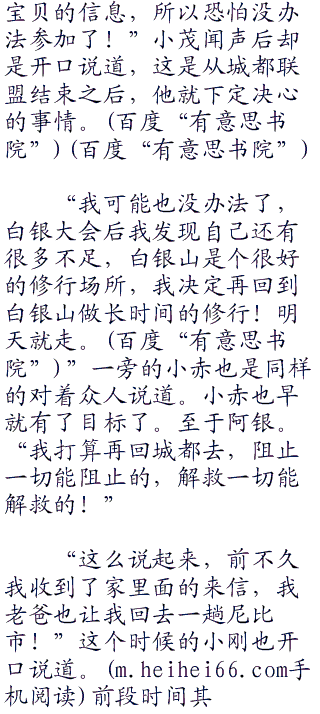 宝贝的信息，所以恐怕没办
法参加了！”小茂闻声后却
是开口说道，这是从城都联
盟结束之后，他就下定决心
的事情。(百度“有意思书
院”)(百度“有意思书院”)
“我可能也没办法了，
白银大会后我发现自己还有
很多不足，白银山是个很好
的修行场所，我决定再回到
白银山做长时间的修行！明
天就走。(百度“有意思书
院”)”一旁的小赤也是同样
的对着众人说道。小赤也早
就有了目标了。至于阿银。
“我打算再回城都去，阻止
一切能阻止的，解救一切能
解救的！”
“这么说起来，前不久
我收到了家里面的来信，我
老爸也让我回去一趟尼比
市！”这个时候的小刚也开
口说道。(m.heihei66.com手
机阅读)前段时间其